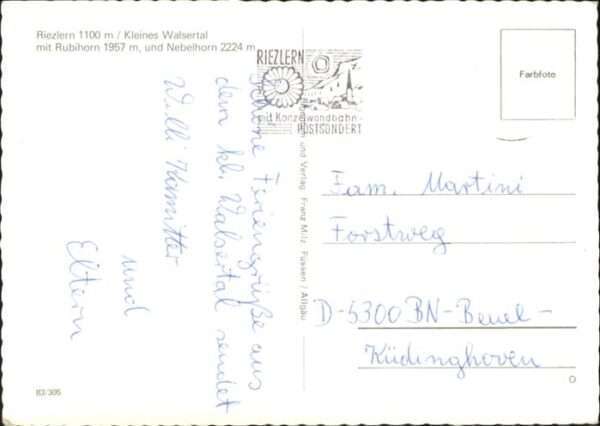 Riezlern 1100 m / Kleines Walsertal
mit Rubihorn 1957 m, und Nebelhorn 2224 m
RIEZLERN
mit Kanzelwandbahn
POSTSONDERT
Farbfoto
Schöne Feriengrüße aus
dem kl. Walsertal sendet
Willi
und
Eltern
und Verlag Franz Milz Füssen / Allgäu
Fam. Martini
Forstweg
D-5300 BN-Beuel-
Küdinghoven
83/305